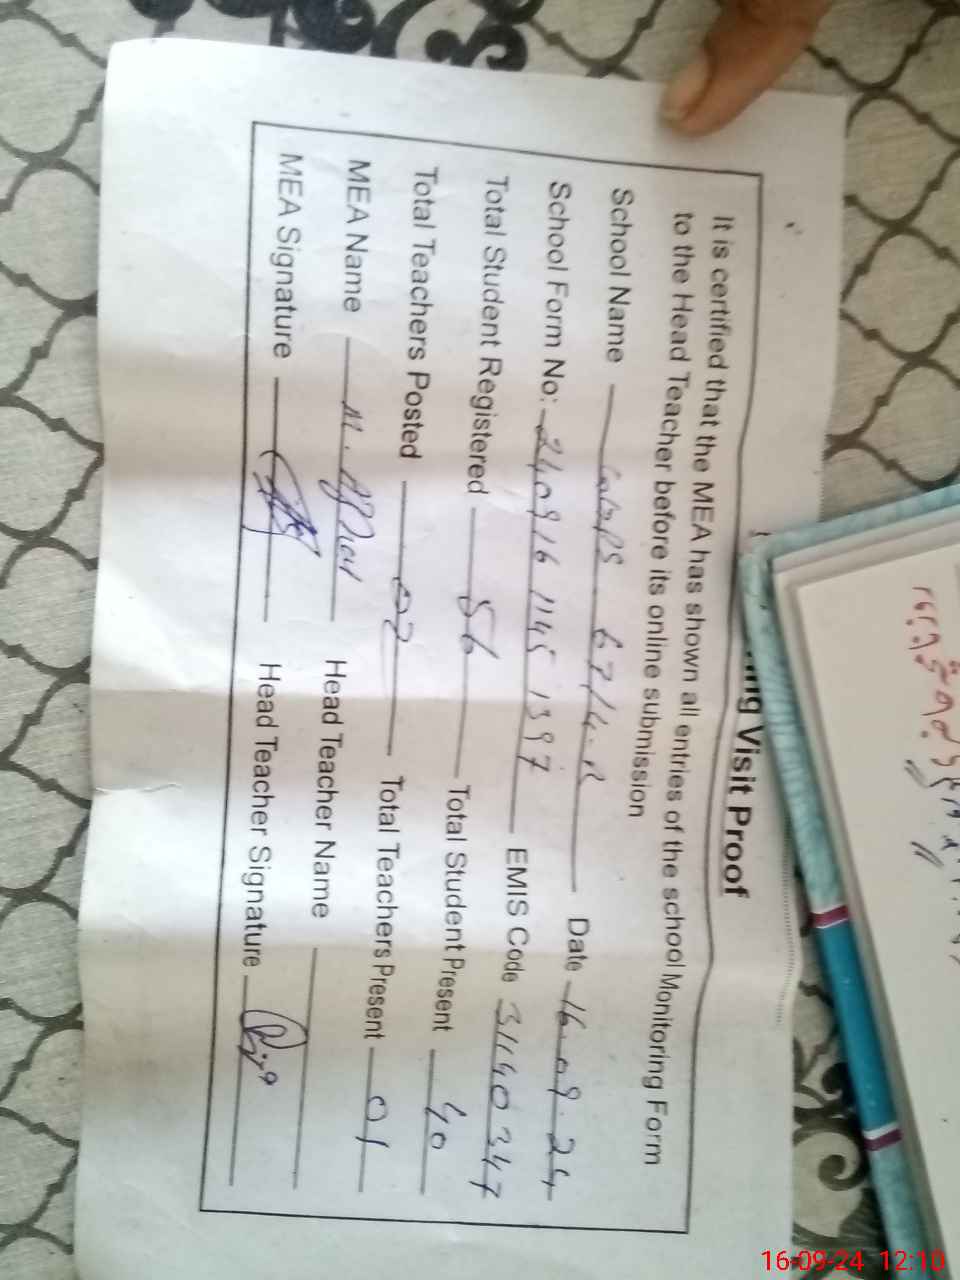 ng Visit Proof
It is certified that the MEA has shown all entries of the school Monitoring Form
to the Head Teacher before its online submission
School Name 67/4.R Date 16.09.24
School Form No: 240916 1145 1397 EMIS Code 31140347
Total Student Registered 56 Total Student Present 40
Total Teachers Posted 02 Total Teachers Present 01
MEA Name M. Head Teacher Name
MEA Signature Head Teacher Signature
16-09-24 12:10